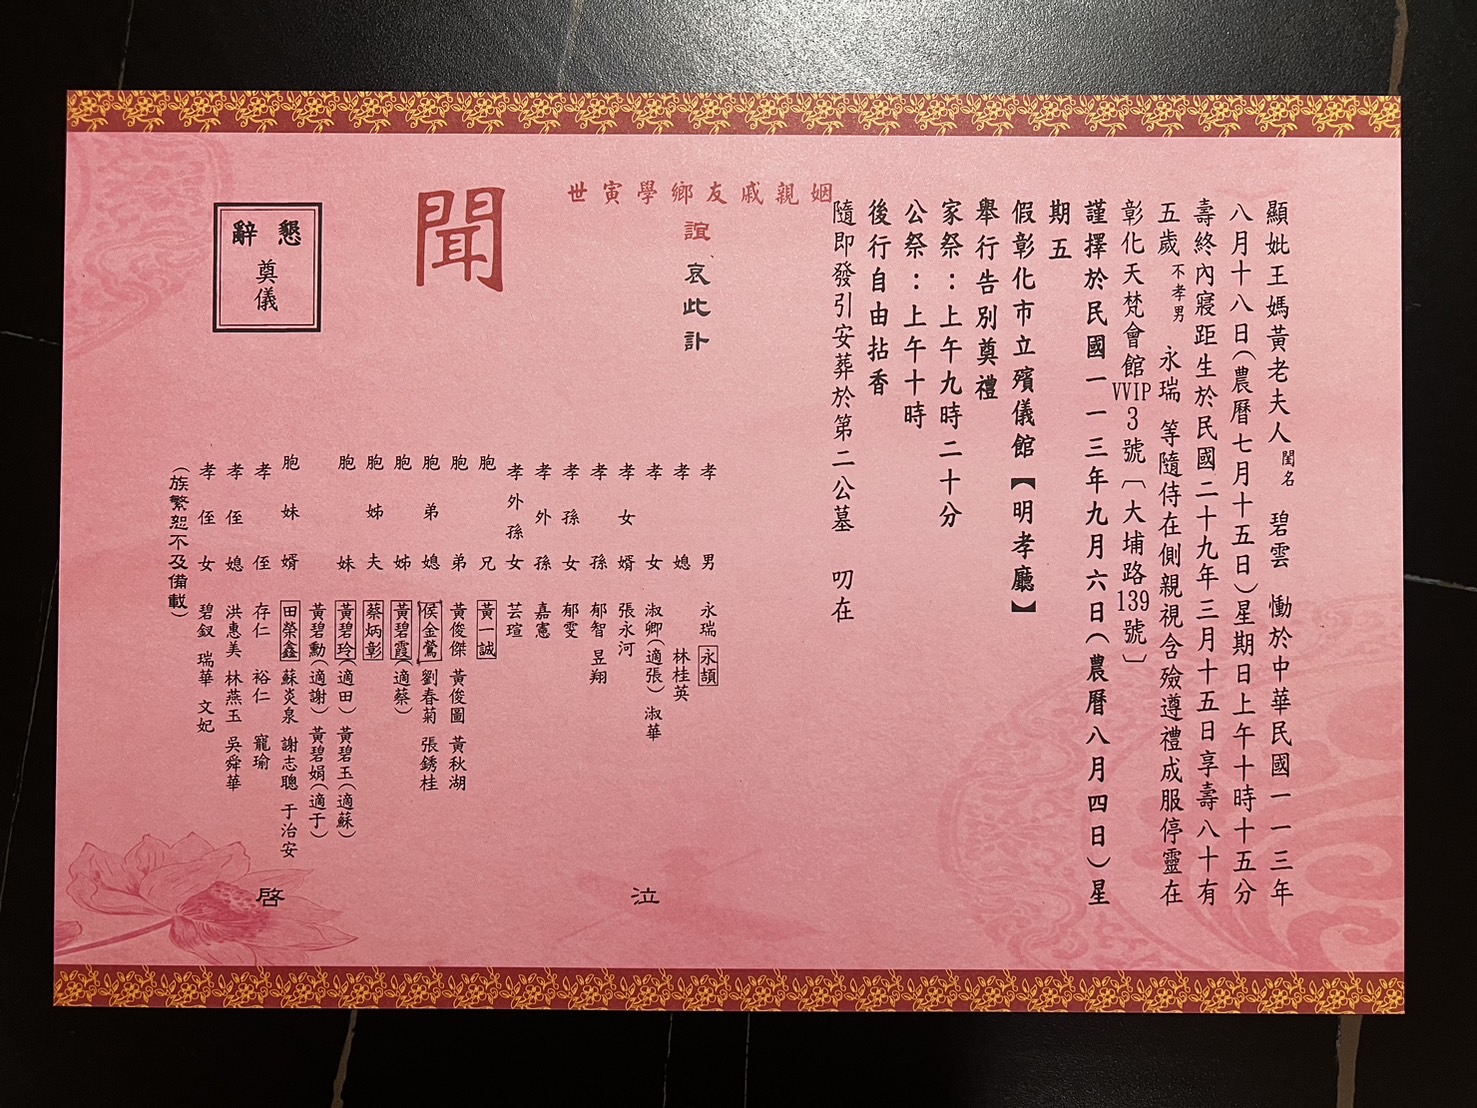 顯妣王媽黃老夫人 閨名 碧雲 慟於中華民國一一三年
八月十八日(農曆七月十五日)星期日上午十時十五分
壽終內寢距生於民國二十九年三月十五日享壽八十有
五歲 不孝男 永瑞 等隨侍在側親視含殮遵禮成服停靈在
彰化天梵會館VVIP3號〔大埔路139號〕
謹擇於民國一一三年九月六日(農曆八月四日)星
期五
假彰化市立殯儀館【明孝廳】
舉行告別奠禮
家祭：上午九時二十分
公祭：上午十時
後行自由拈香
隨即發引安葬於第二公墓 叨在
姻親戚友鄉學寅世
誼 哀此訃
聞
懇辭
奠儀
孝男 永瑞 永頡
孝媳 林桂英
孝女 淑卿(適張) 淑華
孝女婿 張永河
孝孫 郁智 昱翔
孝孫女 郁雯
孝外孫 嘉憲
孝外孫女 芸瑄
胞兄 黃一誠
胞弟 黃俊傑 黃俊圖 黃秋湖
胞弟媳 侯金鶯 劉春菊 張銹桂
胞姊 黃碧霞(適蔡)
胞姊夫 蔡炳彰
胞妹 黃碧玲(適田) 黃碧玉(適蘇)
黃碧勳(適謝) 黃碧娟(適于)
胞妹婿 田榮鑫 蘇炎泉 謝志聰 于治安
孝侄 存仁 裕仁 寵瑜
孝侄媳 洪惠美 林燕玉 吳舜華
孝侄女 碧釵 瑞華 文妃
(族繁恕不及備載)
泣
啓